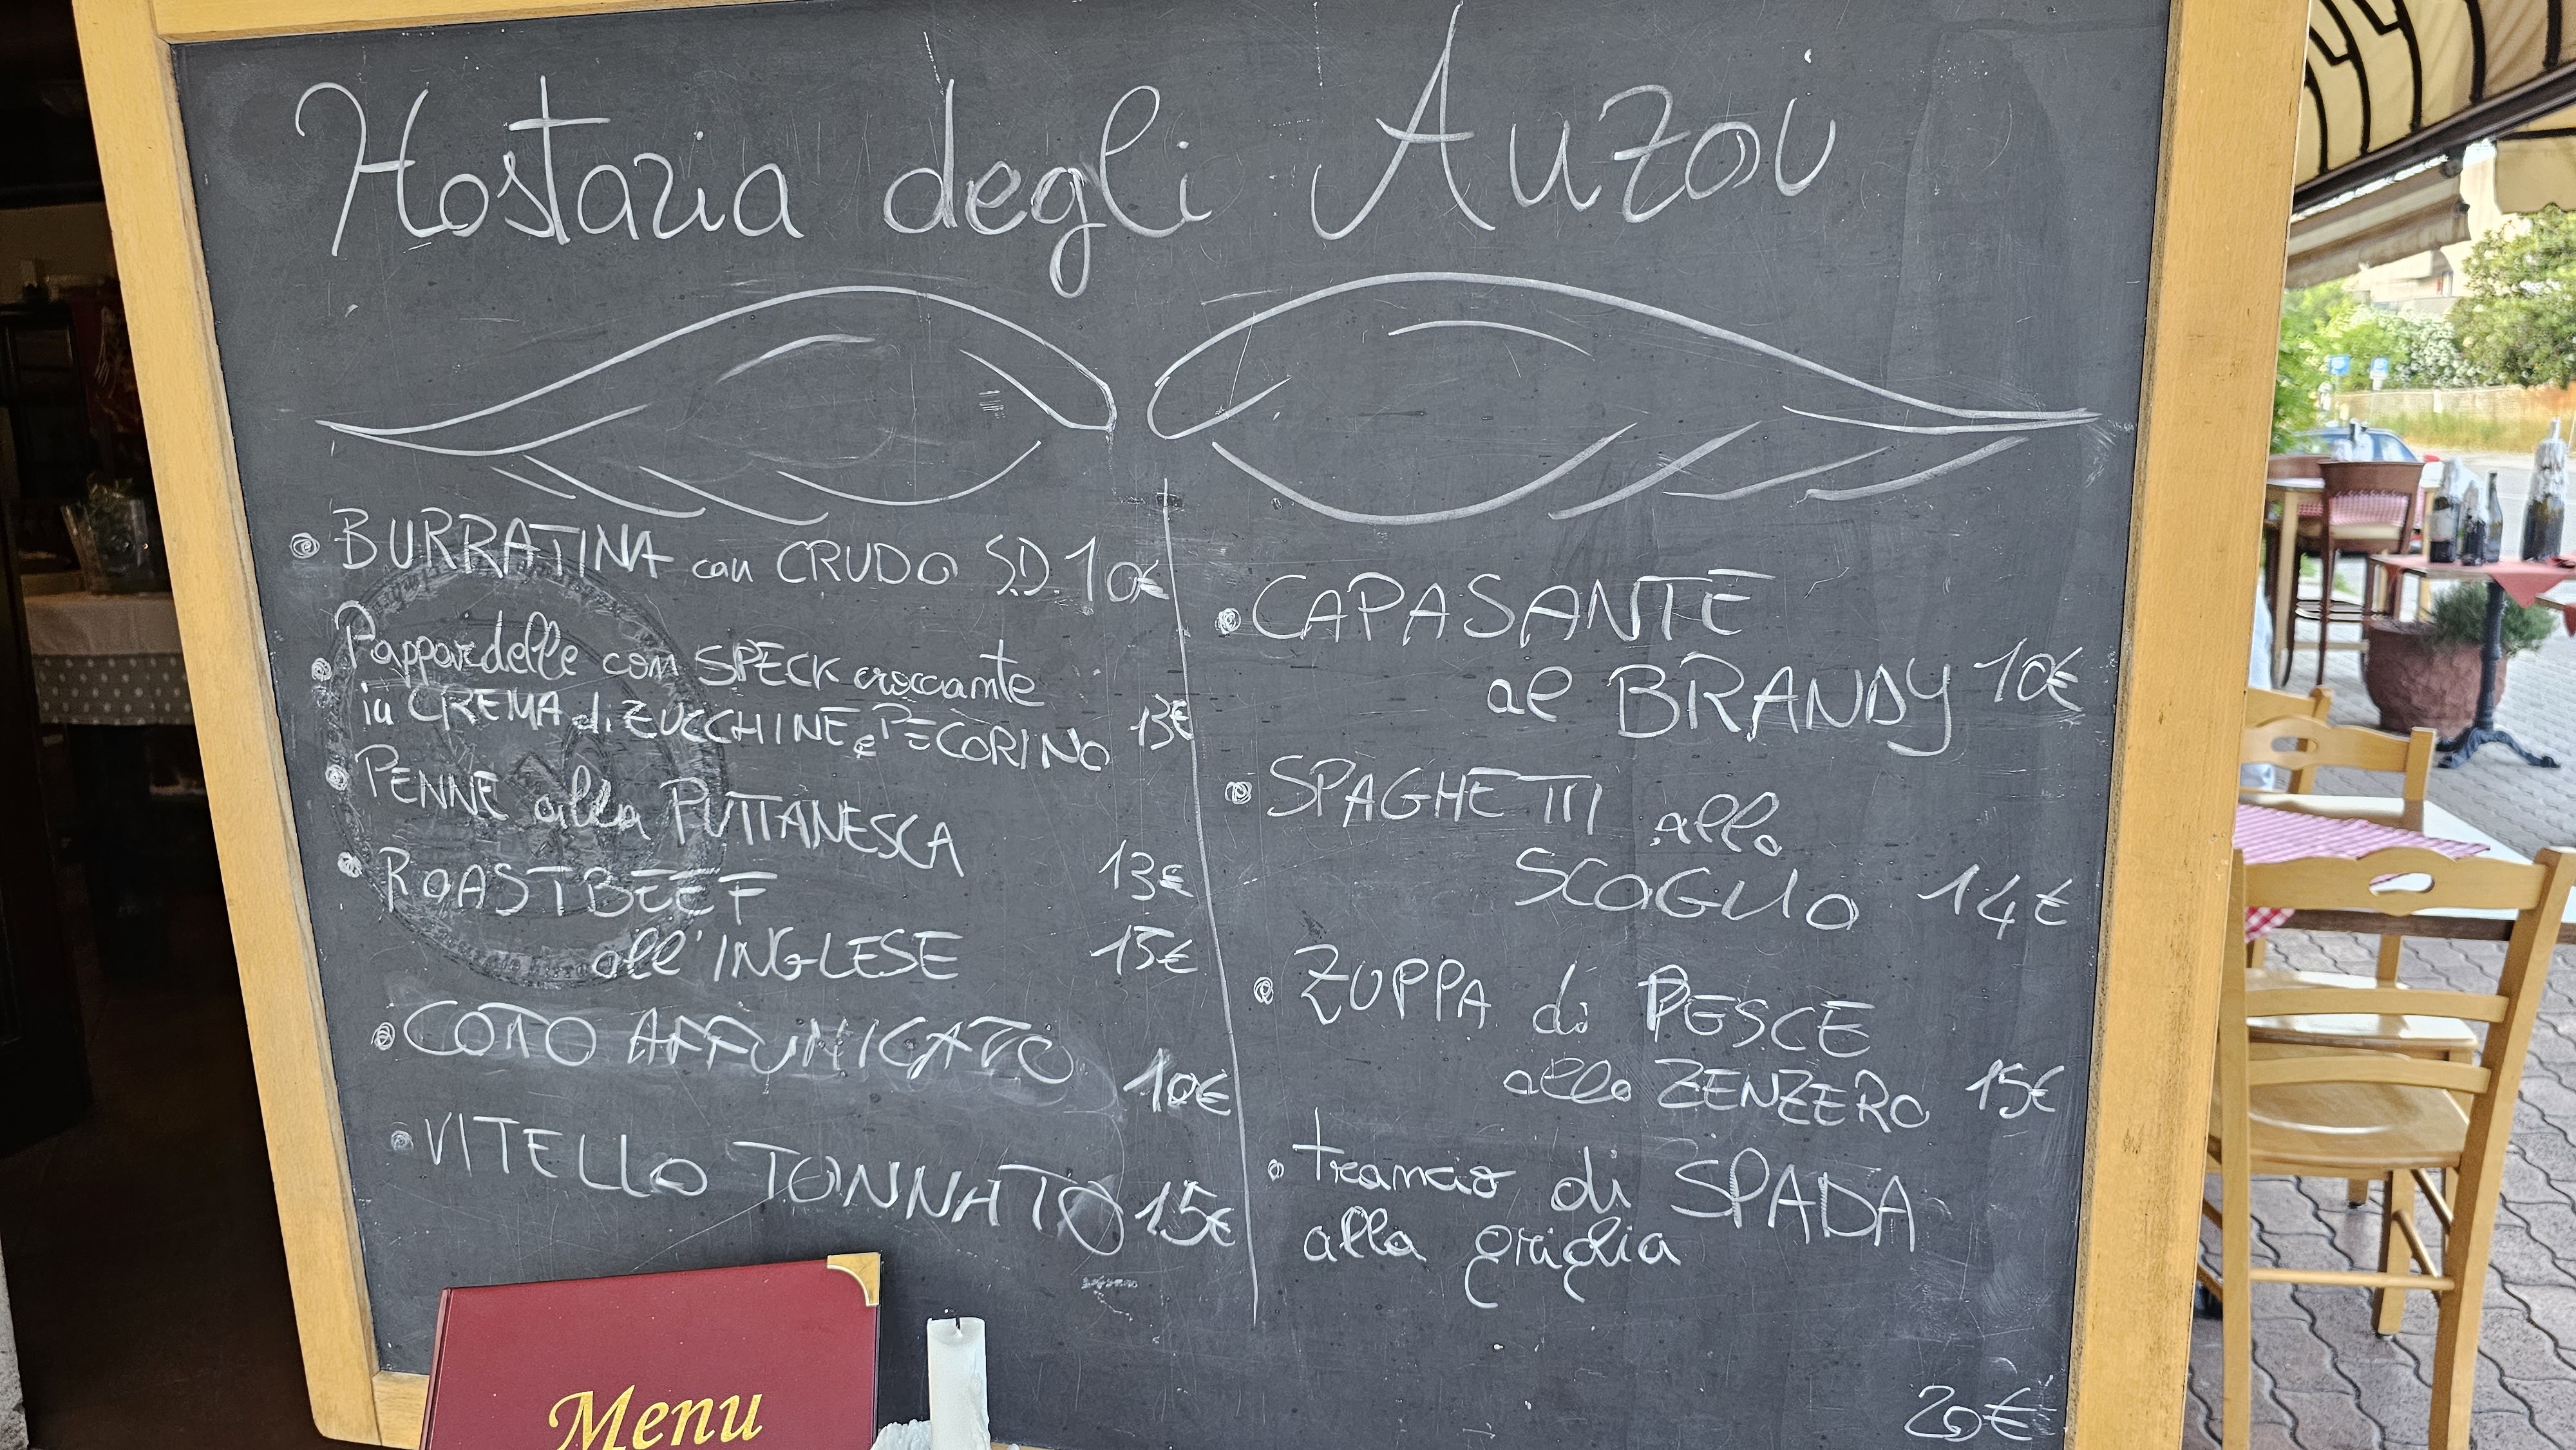 Hostaria degli Auzoi
BURRATINA con CRUDO S.D. 10€
Pappardelle con SPECK croccante
in CREMA di ZUCCHINE e PECORINO 13€
PENNE alla PUTTANESCA
13€
ROASTBEEF
all'INGLESE 15€
COTTO AFFUMICATO
10€
VITELLO TONNATO 15€
CAPASANTE
al BRANDY 10€
SPAGHETTI allo
SCOGLIO 14€
ZUPPA di PESCE
allo ZENZERO 15€
trancio di SPADA
alla griglia
20€
Menu